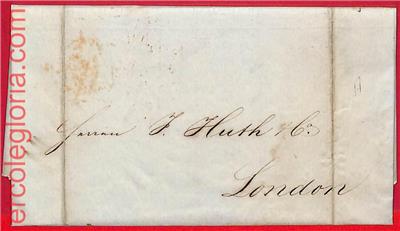 ercolegloria.com
Herren F. Huth & Co.
London